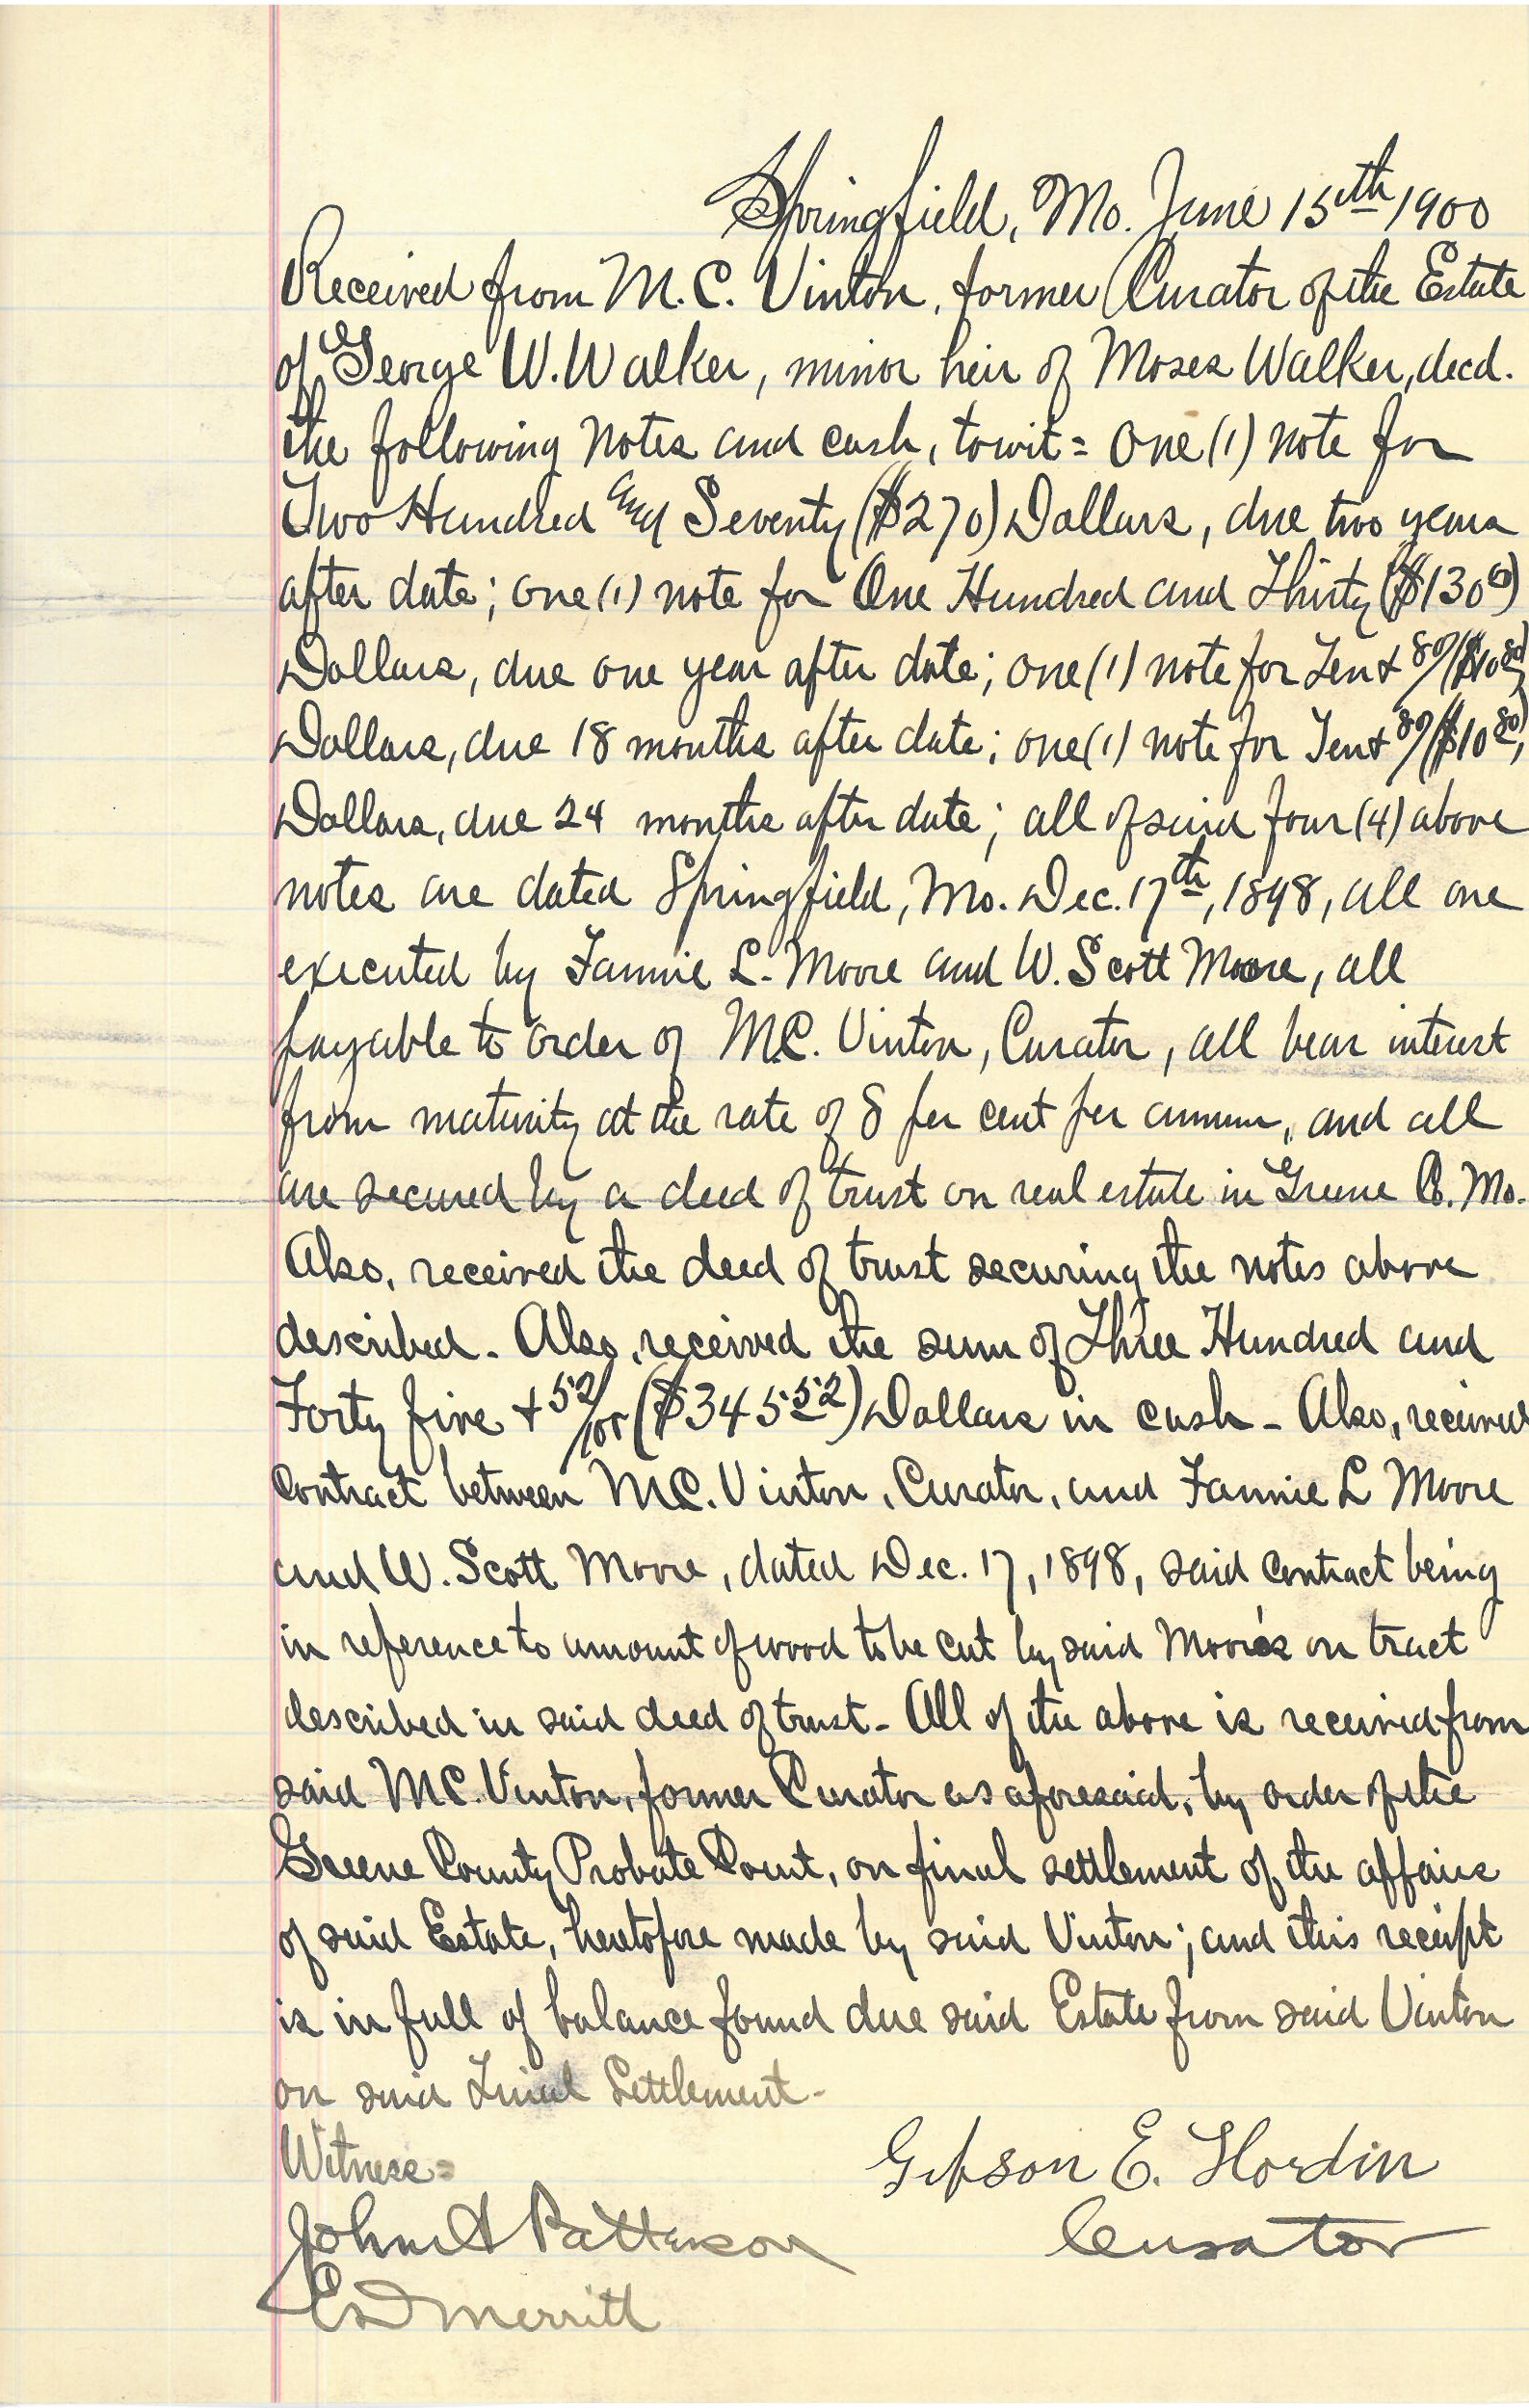 Springfield, Mo. June 15th 1900
Received from M. C. Vinton, former Curator of the Estate
of George W. Walker, minor heir of Moses Walker, decd.
the following notes and cash, towit = One (1) note for
Two Hundred and Seventy ($270) Dollars, due two years
after date; one (1) note for One Hundred and Thirty ($130 00)
Dollars, due one year after date; one (1) note for Ten + 80/ ($10 80)
Dollars, due 18 months after date; one (1) note for Ten + 80/ ($10 80)
Dollars, due 24 months after date; all of said four (4) above
notes are dated Springfield, Mo. Dec. 17th, 1898, all are
executed by Fannie L. Moore and W. Scott Moore, all
payable to order of M.C. Vinton, Curator, all bear interest
from maturity at the rate of 8 per cent per annum, and all
are secured by a deed of trust on real estate in Greene Co. Mo.
Also, received the deed of trust securing the notes above
described - Also, received the sum of Three Hundred and
Forty five + 52/100 ($345 52) Dollars in cash - Also, received
Contract between M.C. Vinton, Curator, and Fannie L Moore
and W. Scott Moore, dated Dec. 17, 1898, said contract being
in reference to amount of wood to be cut by said Moore's on tract
described in said deed of trust - All of the above is received from
said M.C. Vinton, former Curator as aforesaid, by order of the
Greene County Probate Court, on final settlement of the affairs
of said Estate, heretofore made by said Vinton; and this receipt
is in full of balance found due said Estate from said Vinton
on said Final Settlement -
Witness =
Gibson E. Hordin
John A Patterson
Curator
Ed Merritt